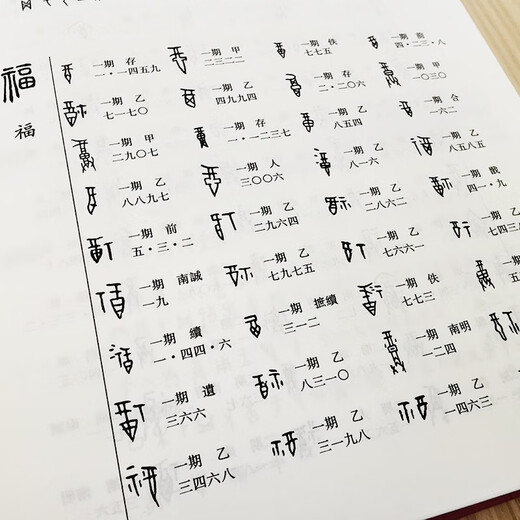 福
福
一期 存
一・一四五九
一期 甲
二三二二
一期 佚
七七五
一期 前
四・二三・八
一期 乙
七一七〇
一期 乙
四九九四
一期 存
二・二〇六
一期 甲
一〇三〇
一期 甲
二九〇七
一期 存
一・一二三七
一期 乙
八五四
一期 合
一六二
一期 乙
八八九七
一期 人
三〇〇六
一期 乙
八一六
一期 乙
八五八五
一期 前
五・三・二
一期 乙
二九六四
一期 乙
二八六二
一期 戩
四一・九
一期 南誠
一九
一期 乙
七九七五
一期 乙
七六六一
一期 乙
七四三
一期 續
一・四四・六
一期 摭續
三一二
一期 佚
七七三
一期
五
一期 遺
三六六
一期 乙
八三一〇
一期 南明
一二四
一期 乙
三四六八
一期 乙
三一九八
一期 乙
一四六三